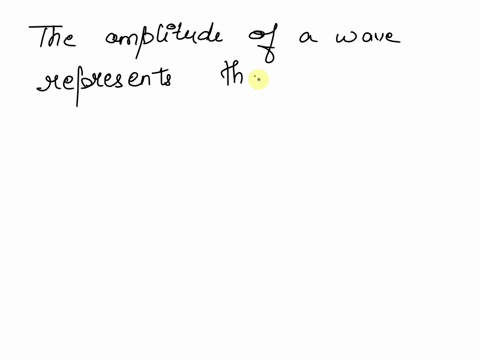 The amplitude of a wave
represents th